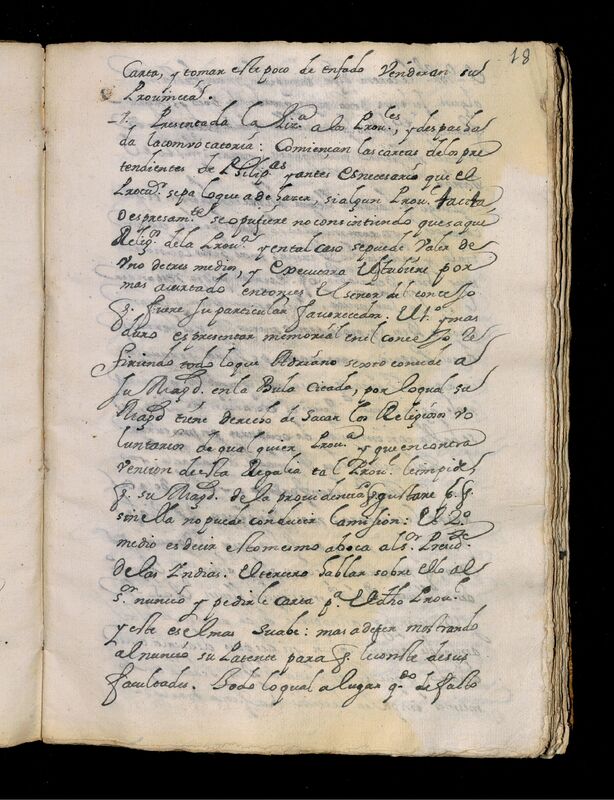 18
Carta, y tomar este poco de enfado Vendran sus
Provincial.
7. Presentada la a los Prou.les, y despacha
da la convocatoria: Comiençan las cartas de los pre
tendientes de Philip.as y antes es necesario que el
Procu.r sepa lo que a de hazer, si algun Prou.l tacita
o espresam.te se opusiere no consintiendo que saque
Relig.os de la Prou.a y en tal caso se puede Valer de
Uno de tres medios, y executara el
mas acertado entonces el señor del consejo
q. fuere su particular favorecedor. El 1.o y mas
duro es presentar memorial en el consejo re
firiendo todo lo que Adriano sexto concede a
su Magd. en la Bula citada, por lo qual su
Magd. tiene derecho de sacar los Religiosos vo
luntarios de qualquier Prou.a y que en contra
vencion de esta Regalia tal Prou.l le impide
q. su Magd. de la providencia q. gustare
sin ella no puede conducir la mision: El 2.o
medio es decir esto mesmo a boca al s.or Presid.te
de las Indias. El tercero hablar sobre ello al
s.or nuncio y pedirle carta p.a el dho Prou.l
y este es el mas suabe: mas a de ser mostrando
al nuncio su Patente para q. le conste de sus
facultades. Todo lo qual a lugar q.do de facto